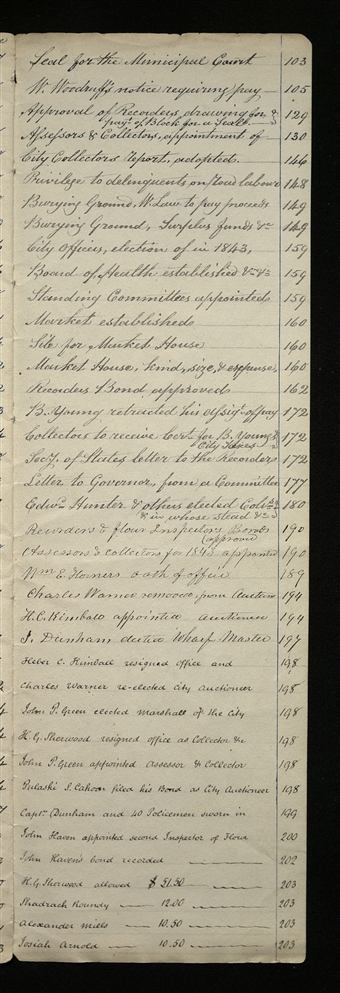 Seal for the Municipal Court 103
W. Woodruff's notice requiring pay 105
Approval of Recorders drawing for
pay't of Block for a Seal 129
Assessors & Collectors, appointment of 130
City Collectors report, adopted. 146
Privilege to delinquents on road labour 148
Burying Ground, W. Law to pay proceeds 149
Burying Ground, Surplus funds &c 149
City Officers, election of in 1843, 159
Board of Health established &c &c 159
Standing Committees appointed 159
Market established 160
Site for Market House 160
Market House, kind, size, & expense, 160
Recorders Bond approved 162
B. Young retracted his assig't of pay 172
Collectors to receive Cert. for B. Young's
City Taxes 172
Secy. of States letter to the Recorder 172
Letter to Governor, from a Committee 177
Edw'd Hunter & others elected
& in whose stead &c 180
Recorders & flour Inspectors Bonds
approved 190
Assessors & collectors for 1843 appointed 190
Wm E. Horners oath of office 189
Charles Warner removed from Auction 194
H. C. Kimball appointed Auctioneer 194
J. Dunham elected Wharf Master 197
Heber C. Kimball resigned office and 198
Charles Warner re-elected City Auctioneer 198
John P. Green elected marshall of the City 198
H. G. Sherwood resigned office as Collector &c 198
John P. Green appointed Assessor & Collector 198
Pulaski S. Cahoon filed his Bond as City Auctioneer 198
Capt. Dunham and 40 Policemen sworn in 199
John Haven appointed second Inspector of Flour 200
John Haven's bond recorded 202
H. G. Sherwood allowed $ 51.50 203
Shadrach Roundy 12.00 203
Alexander Mills 10.50 203
Josiah Arnold 10.50 203